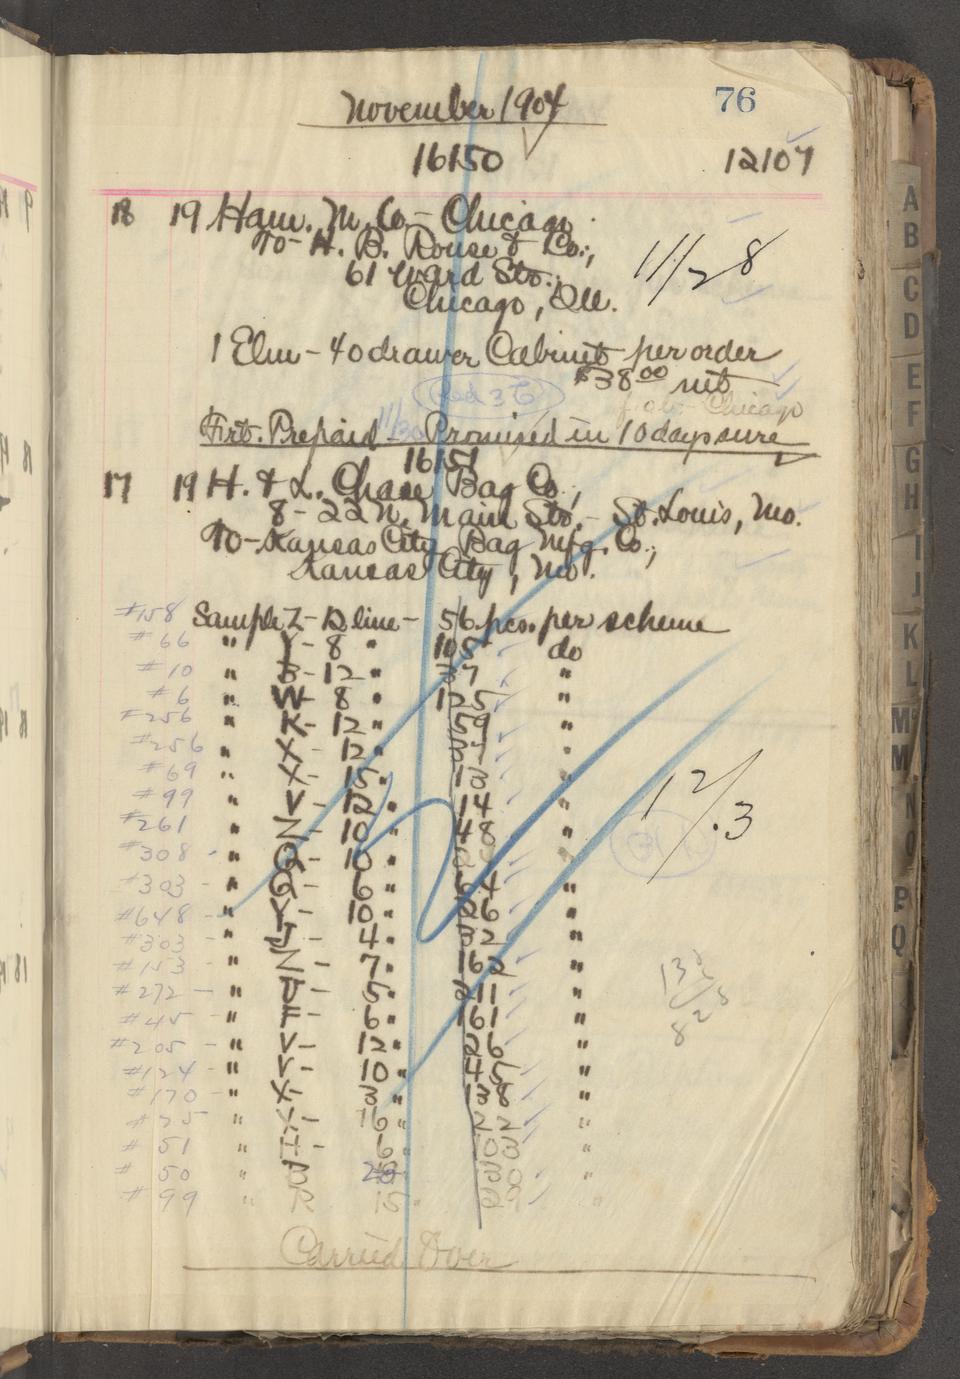 November 1904 76
16150 12107
18 19 Ham. M. Co. - Chicago
To - H. B. Rouse & Co.,
61 Ward Str.
Chicago, Ill.
11/28
1 Elm - 40 drawer Cabinet per order
$38.00 net
f.o.b. - Chicago
Frt. Prepaid - Promised in 10 days sure
16151
17 19 H. & L. Chase Bag Co.,
8-22 N. Main Str. - St. Louis, Mo.
To - Kansas City Bag Mfg. Co.,
Kansas City, Mo.
#158 Sample Z - 12 line - 56 pcs. per scheme
#66 " Y - 8 " 105 do
#10 " B - 12 " 37 "
#6 " W - 8 " 125 "
#256 " K - 12 " 59 "
#256 " X - 12 " 37 "
#69 " X - 15 " 13 "
#99 " V - 12 " 14 "
#261 " N - 10 " 48 "
#308 - " Q - 10 " "
#303 - " Q - 6 " 64 "
#648 - " Y - 10 " 26 "
#303 - " J - 4 " 32 "
#153 - " N - 7 " 162 "
#272 - " U - 5 " 211 "
#45 - " F - 6 " 161 "
#205 - " V - 12 " 26 "
#124 - " V - 10 " 45 "
#170 - " X - 3 " 138 "
" X - 16 " 22 "
#51 " I - 6 " 103 "
#50 " 30 "
#99 " R 15 " 29 "
12/3
Carried Over
A
B
C
D
E
F
G
H
I
J
K
L
M
M
N
O
P
Q